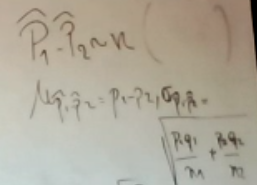 p̂₁-p̂₂~n( )
μp̂₁-p̂₂=p₁-p₂, σp̂₁-p̂₂=
√(p₁q₁/n₁ + p₂q₂/n₂)